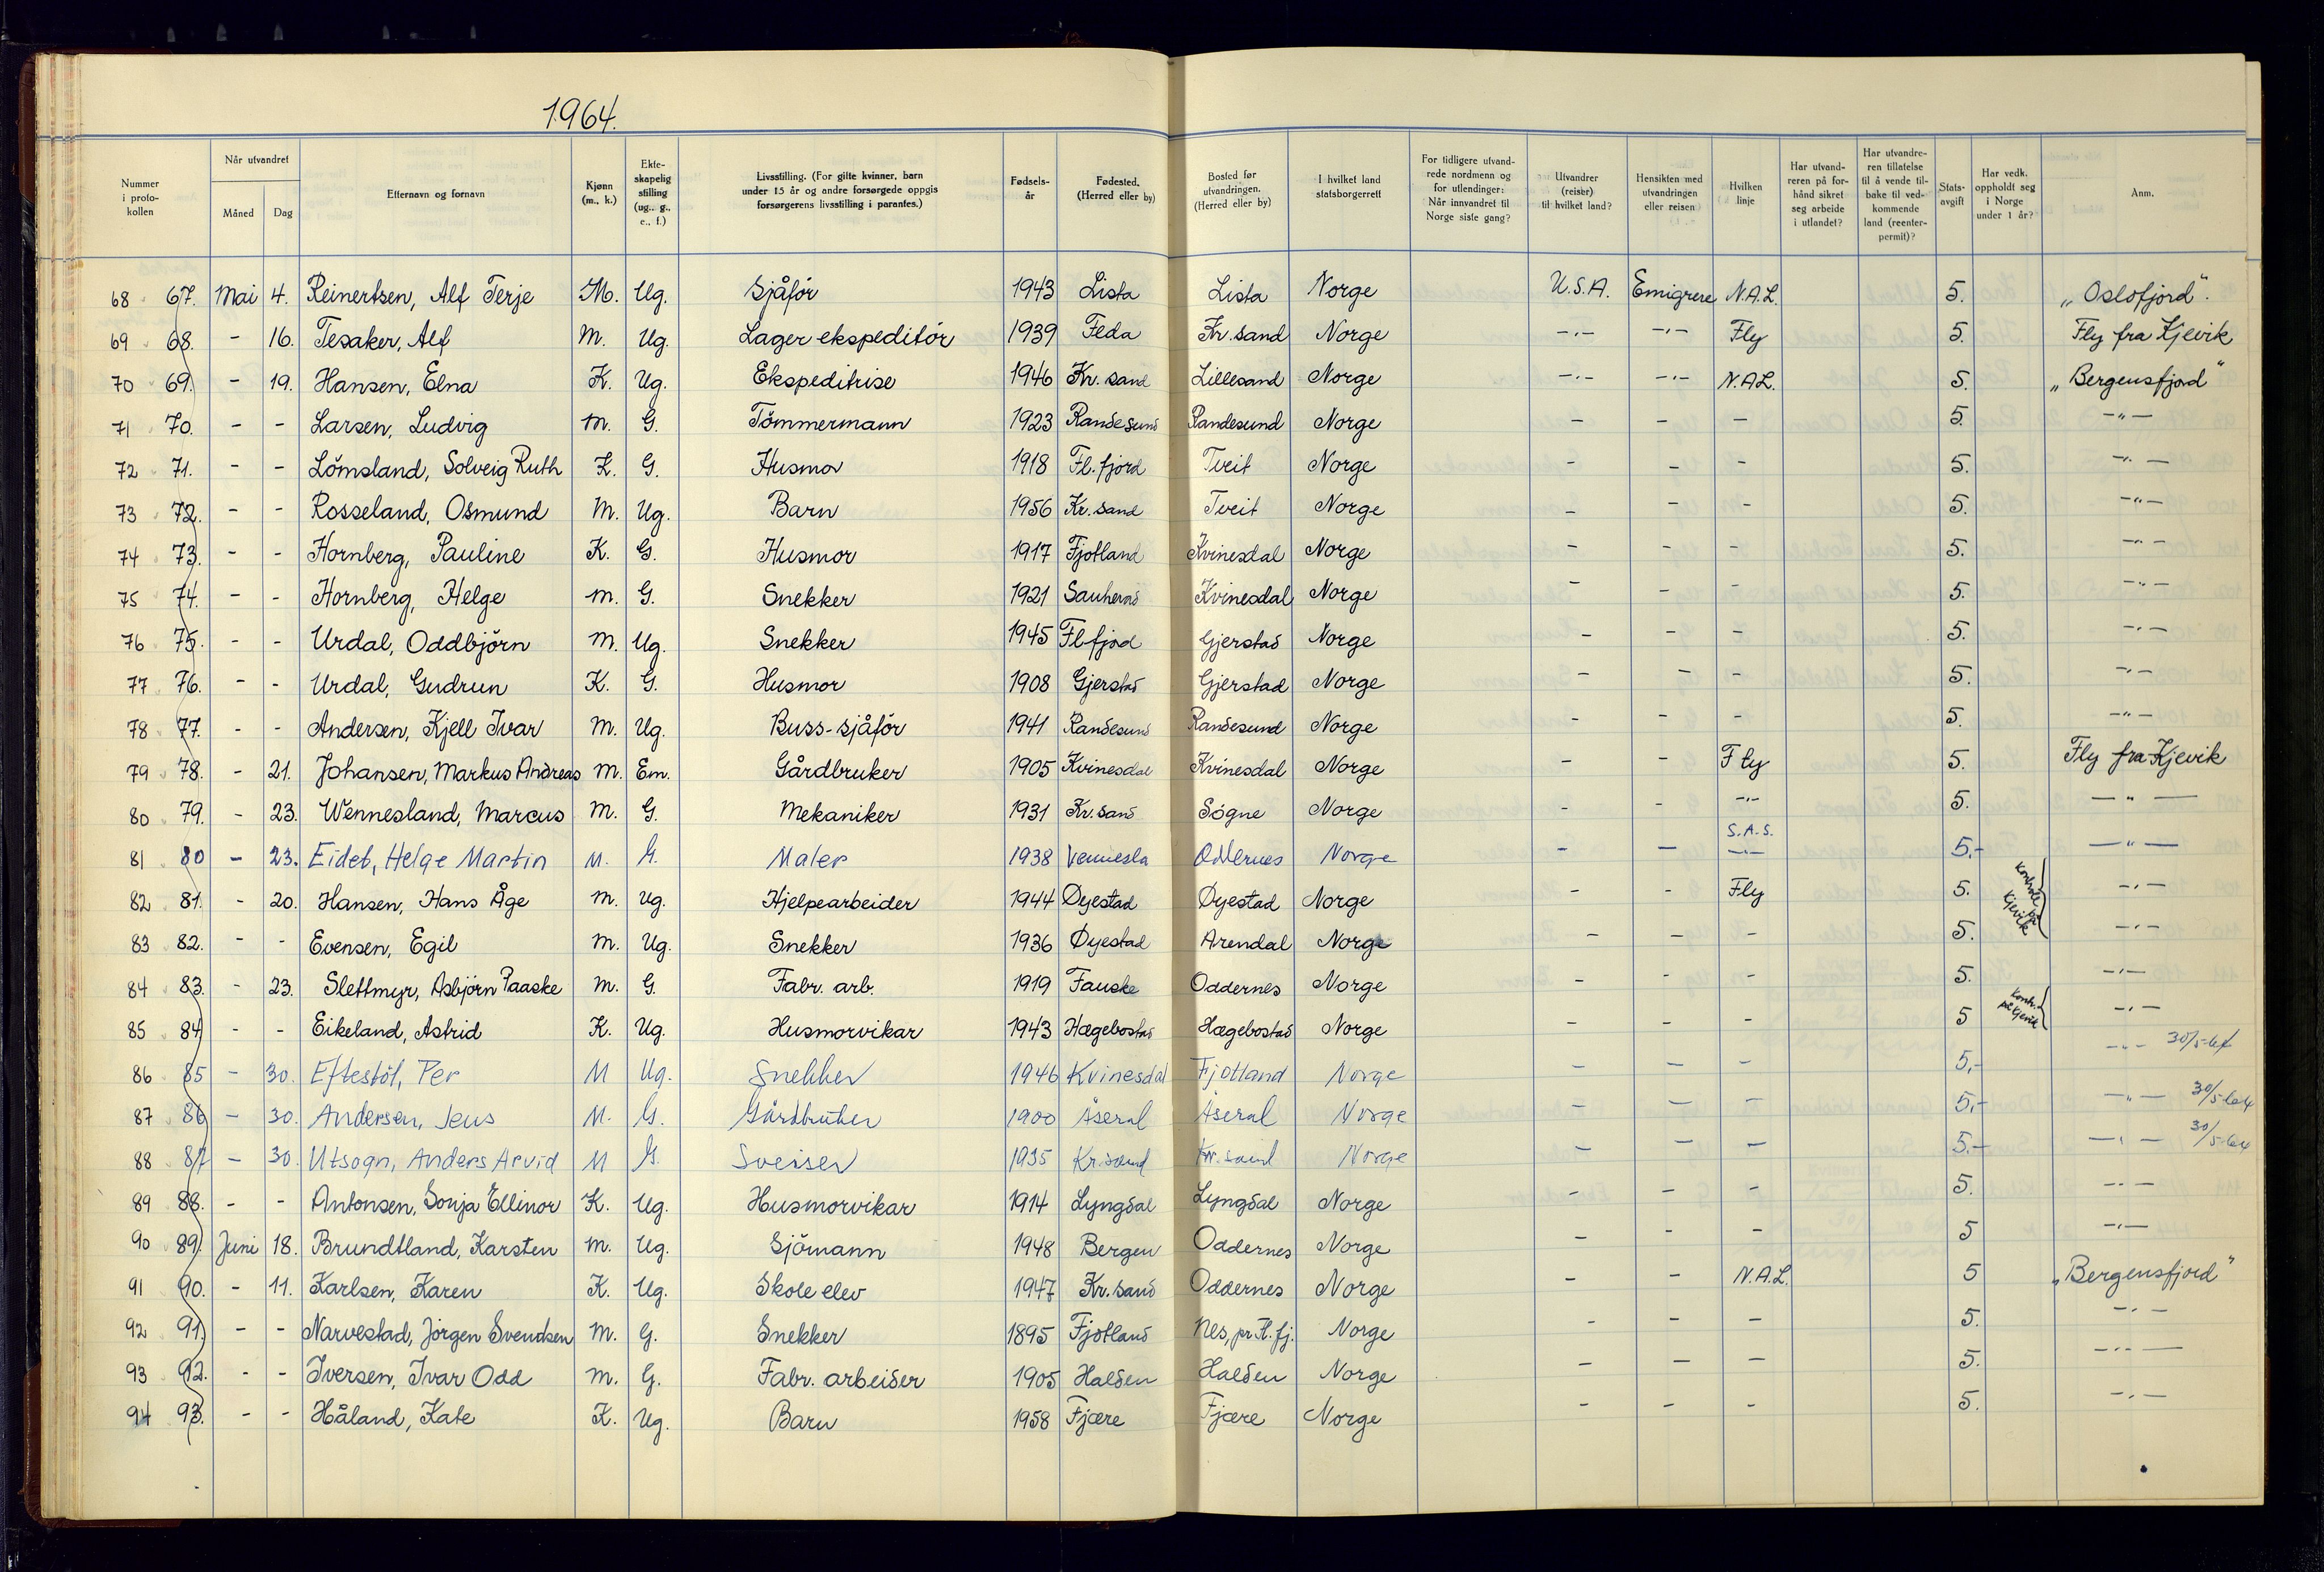 1964.
Nummer i protokollen | Når utvandret Måned | Dag | Etternavn og fornavn | Kjønn (m., k.) | Ekteskapelig stilling (ug., g., e., f.) | Livsstilling. (For gifte kvinner, barn under 15 år og andre forsørgede oppgis forsørgerens livsstilling i parantes.) | Fødselsår | Fødested. (Herred eller by) | Bosted før utvandringen. (Herred eller by) | I hvilket land statsborgerrett | For tidligere utvandrede nordmenn og for utlendinger: Når innvandret til Norge siste gang? | Utvandrer (reiser) til hvilket land? | Hensikten med utvandringen eller reisen | Hvilken linje | Har utvandreren på forhånd sikret seg arbeide i utlandet? | Har utvandreren tillatelse til å vende tilbake til vedkommende land (reenterpermit)? | Statsavgift | Har vedk. oppholdt seg i Norge under 1 år? | Anm.
68 67. Mai 4. Reinertsen, Alf Terje M. Ug. Sjåför 1943 Lista Lista Norge U.S.A. Emigrere N.A.L. 5. „Oslofjord".
69 68. - 16. Tesaker, Alf M. Ug. Lager ekspeditör 1939 Feda Kr. sand Norge -"- -"- Fly 5. Fly fra Kjevik
70 69. - 19. Hansen, Elna K. Ug. Ekspeditrise 1946 Kr. sand Lillesand Norge -"- -"- N.A.L. 5. „Bergensfjord"
71 70. - - Larsen, Ludvig M. G. Tömmermann 1923 Randesund Randesund Norge - - - 5. -"-
72 71. - - Lömsland, Solveig Ruth K. G. Husmor 1918 Fl. fjord Tveit Norge - - - 5. -"-
73 72. - - Rosseland, Osmund M. Ug. Barn 1956 Kr. sand Tveit Norge - - - 5. -"-
74 73. - - Hornberg, Pauline K. G. Husmor 1917 Fjotland Kvinesdal Norge - - - 5. -"-
75 74. - - Hornberg, Helge M. G. Snekker 1921 Sauherad Kvinesdal Norge - - - 5. -"-
76 75. - - Urdal, Oddbjörn M. Ug. Snekker 1945 Fl.fjord Gjerstad Norge - - - 5. -"-
77 76. - - Urdal, Gudrun K. G. Husmor 1908 Gjerstad Gjerstad Norge - - - 5. -"-
78 77. - - Andersen, Kjell Ivar M. Ug. Buss-sjåför 1941 Randesund Randesund Norge - - - 5. -"-
79 78. - 21. Johansen, Markus Andreas M. Em. Gårdbruker 1905 Kvinesdal Kvinesdal Norge - - Fly 5. Fly fra Kjevik
80 79. - 23. Wennesland, Marcus M. G. Mekaniker 1931 Kr. sand Sögne Norge - - -"- 5. -"-
81 80 - 23. Eidet, Helge Martin M. G. Maler 1938 Vennesla Oddernes Norge - - S.A.S. -"- 5,- -"-
82 81. - 20. Hansen, Hans Åge M. Ug. Hjelpearbeider 1944 Øyestad Øyestad Norge - - Fly 5. Kontrole på Kjevik -"-
83 82. - - Evensen, Egil M. Ug. Snekker 1936 Øyestad Arendal Norge - - - 5. -"-
84 83. - 23. Slettmyr, Asbjörn Paaske M. G. Fabr. arb. 1919 Fauske Oddernes Norge - - - 5. -"-
85 84 - - Eikeland, Astrid K. Ug. Husmorvikar 1943 Hægebostad Hægebostad Norge - - - 5 Kontr. på Kjevik -"-
86 85 - 30. Eftestöl, Per M Ug. Snekker 1946 Kvinesdal Fjotland Norge - - - 5,- -"- 30/5-64
87 86 - 30. Andersen, Jens M. G. Gårdbruker 1900 Åseral Åseral Norge - - - 5,- -"- 30/5-64
88 87 - 30. Utsogn, Anders Arvid M G. Sveiser 1935 Kr.sand Kr. sand Norge - - - 5.- -"- 30/5-64
89 88. - - Antonsen, Sonja Ellinor K. Ug. Husmorvikar 1914 Lyngdal Lyngdal Norge - - - 5. -"-
90 89. Juni 18. Brundtland, Karsten M. Ug. Sjömann 1948 Bergen Oddernes Norge - - - 5 -"-
91 90. - 11. Karlsen, Karen K. Ug. Skole elev 1947 Kr. sand Oddernes Norge - - N.A.L. 5 „Bergensfjord"
92 91 - - Narvestad, Jörgen Svendsen M. G. Snekker 1895 Fjotland Nes, pr. Fl. fj. Norge - - - 5. -"-
93 92. - - Iversen, Ivar Odd M. G. Fabr. arbeider 1905 Halden Halden Norge - - - 5. -"-
94 93. - - Håland, Kate K. Ug. Barn 1958 Fjære Fjære Norge - - - 5. -"-